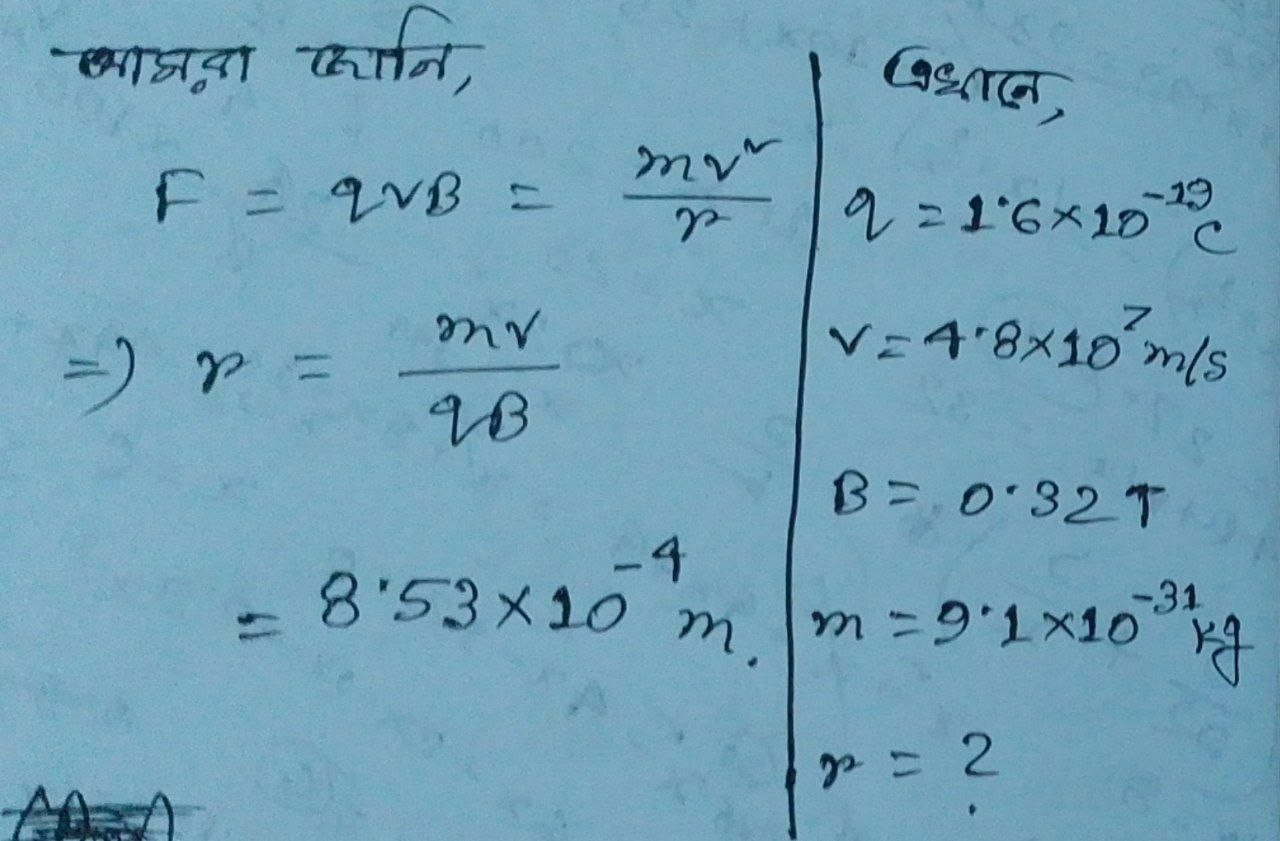 আমরা জানি,
F = qvB = mv²/r
=) r = mv/qB
= 8.53×10⁻⁴ m.
এখানে,
q = 1.6×10⁻¹⁹ C
v = 4.8×10⁷ m/s
B = 0.32 T
m = 9.1×10⁻³¹ kg
r = ?